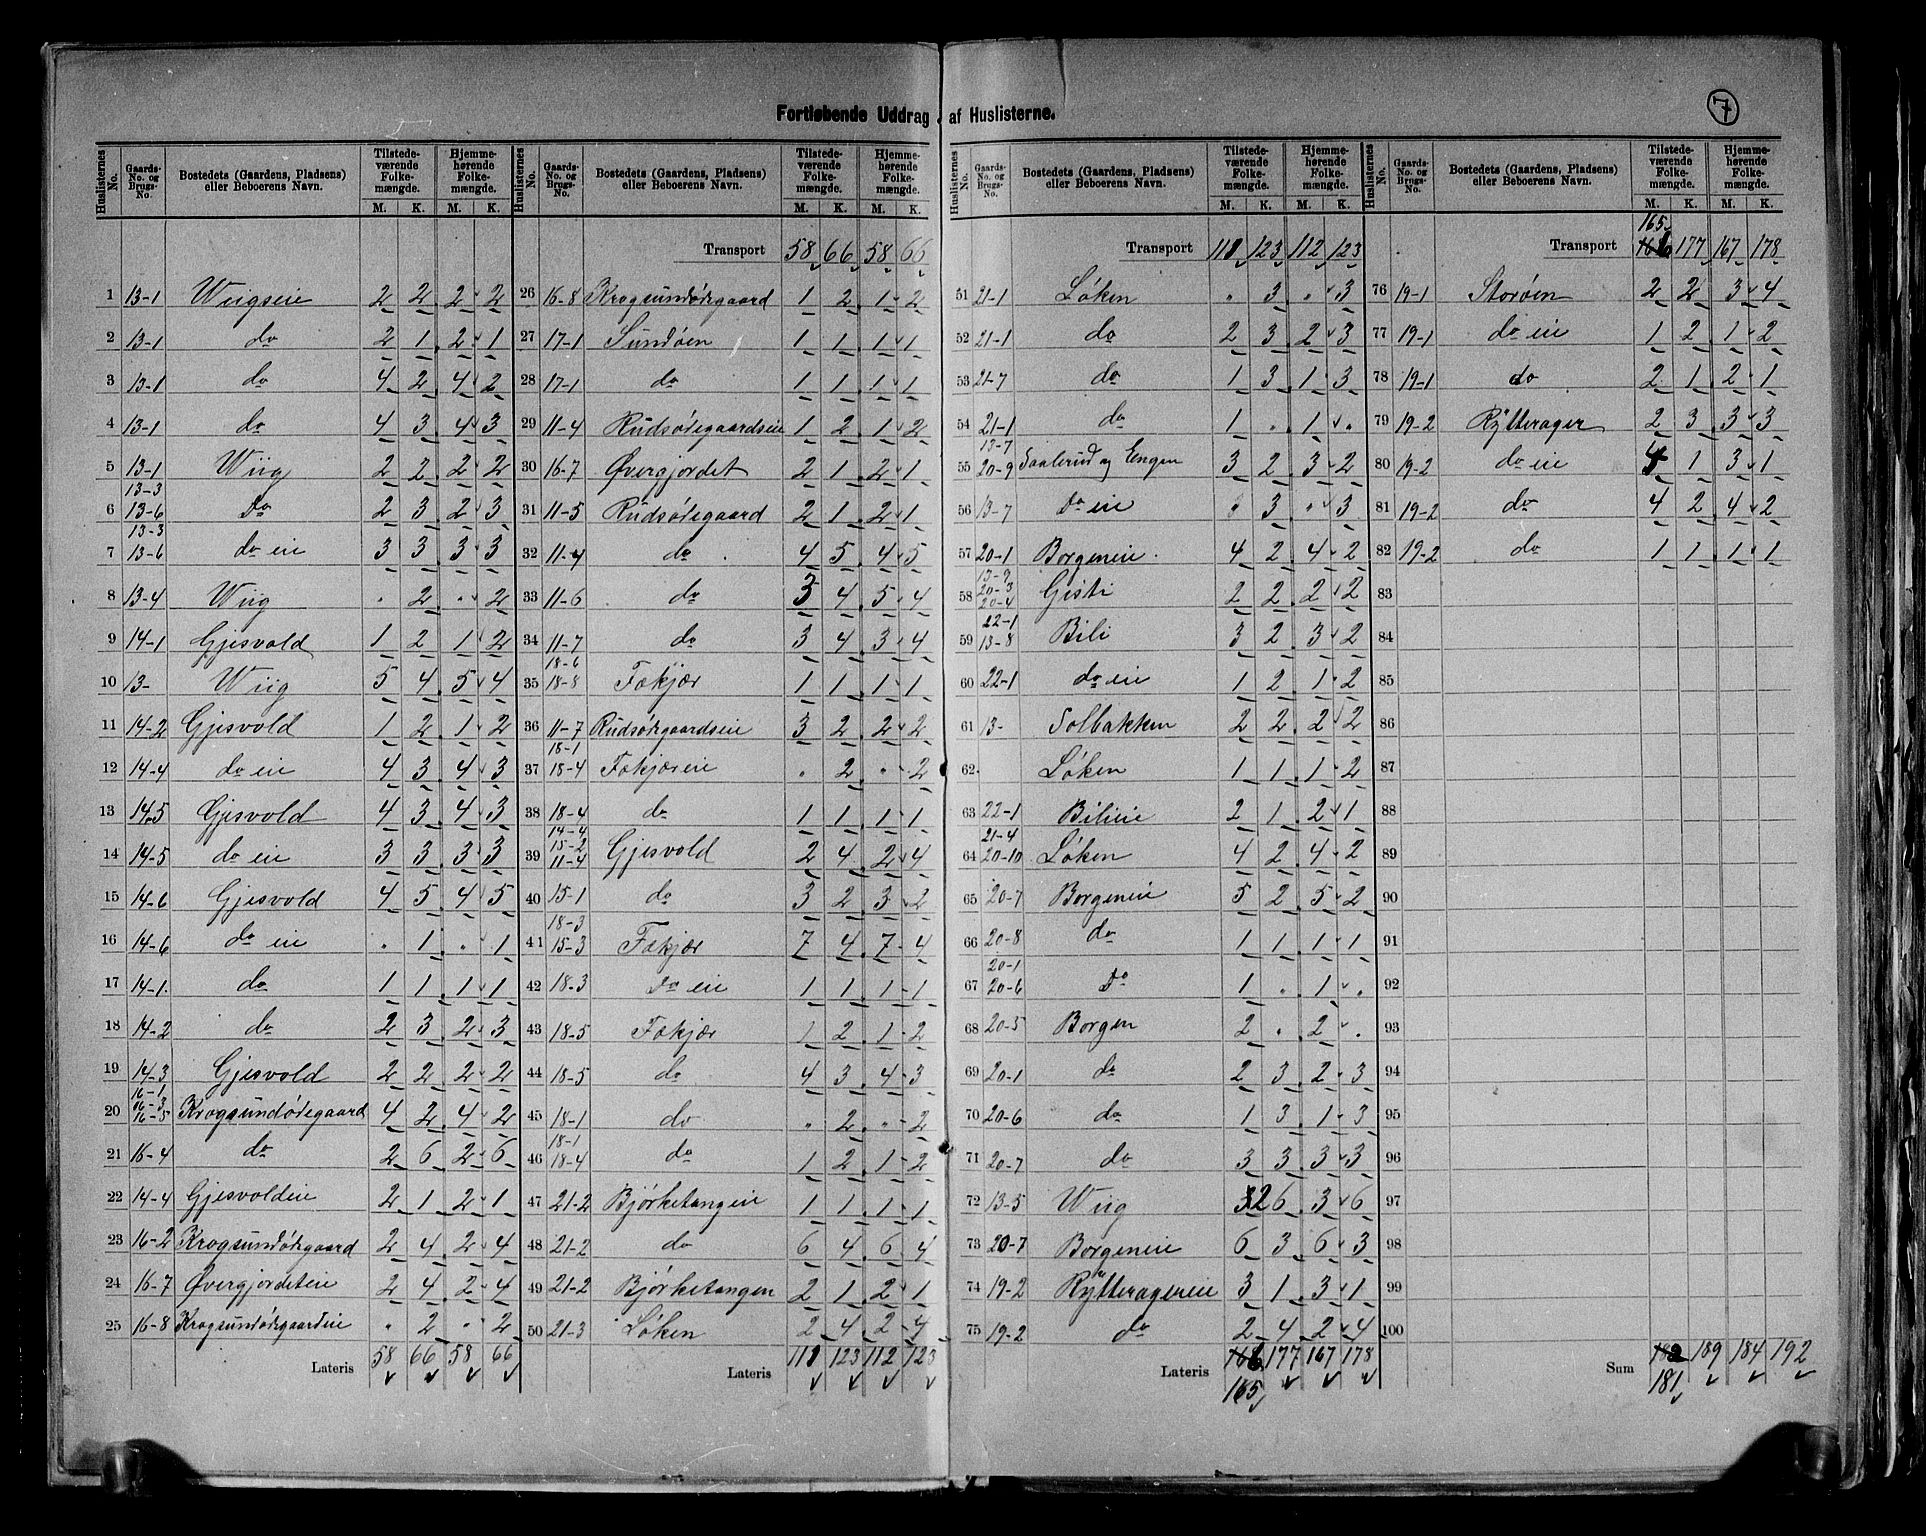 7
Fortløbende Uddrag af Huslisterne.
Huslisternes No. | Gaards-No. og Brugs-No. | Bostedets (Gaardens, Pladsens) eller Beboerens Navn. | Tilstedeværende Folkemængde. M. K. | Hjemmehørende Folkemængde. M. K.
1 13-1 Wiigseie 2 2 2 2
2 13-1 do 2 1 2 1
3 13-1 do 4 2 4 2
4 13-1 do 4 3 4 3
5 13-1 Wiig 2 2 2 2
6 13-3 13-6 Do 2 3 2 3
7 13-3 13-6 do eie 3 3 3 3
8 13-4 Wiig " 2 " 2
9 14-1 Gjesvold 1 2 1 2
10 13- Wiig 5 4 5 4
11 14-2 Gjesvold 1 2 1 2
12 14-4 do eie 4 3 4 3
13 14-5 Gjesvold 4 3 4 3
14 14-5 do eie 3 3 3 3
15 14-6 Gjesvold 4 5 4 5
16 14-6 do eie " 1 " 1
17 14-1. do 1 1 1 1
18 14-2 do 2 3 2 3
19 14-3 Gjesvold 2 2 2 2
20 16-1 16-3 16-5 Krogsundødegaard 4 2 4 2
21 16-4 do 2 6 2 6
22 14-4 Gjesvoldeie 2 1 2 1
23 16-2 Krogsundødegaard 2 4 2 4
24 16-7 Øvergjordeteie 2 4 2 4
25 16-8 Krogsundødegaardeie " 2 " 2
Lateris 58 66 58 66
Huslisternes No. | Gaards-No. og Brugs-No. | Bostedets (Gaardens, Pladsens) eller Beboerens Navn. | Tilstedeværende Folkemængde. M. K. | Hjemmehørende Folkemængde. M. K.
Transport 58 66 58 66
26 16-8 Krogsundødegaard 1 2 1 2
27 17-1 Sundøen 1 1 1 1
28 17-1 do 1 1 1 1
29 11-4 Rudsødegaardseie 1 2 1 2
30 16-7 Øvergjordet 2 1 2 1
31 11-5 Rudsødegaard 2 1 2 1
32 11-4 do 4 5 4 5
33 11-6 do 3 4 5 4
34 11-7 do 3 4 3 4
35 18-6 18-8 Fokjær 1 1 1 1
36 11-7 Rudsødegaardseie 3 2 2 2
37 18-1 18-4 Fokjæreie " 2 " 2
38 18-4 do 1 1 1 1
39 14-4 15-2 11-4 Gjesvold 2 4 2 4
40 15-1 do 3 2 3 2
41 18-3 15-3 Fokjær 7 4 7 4
42 18-3 Do eie 1 1 1 1
43 18-5 Fokjær 1 2 1 2
44 18-5 do 4 3 4 3
45 18-1 do " 2 " 2
46 18-1 18-4 do 1 2 1 2
47 21-2 Bjørketangeie 1 1 1 1
48 21-2 do 6 4 6 4
49 21-2 Bjørketangen 2 1 2 1
50 21-3 Løken 2 4 2 4
Lateris 111 123 112 123
Huslisternes No. | Gaards-No. og Brugs-No. | Bostedets (Gaardens, Pladsens) eller Beboerens Navn. | Tilstedeværende Folkemængde. M. K. | Hjemmehørende Folkemængde. M. K.
Transport 111 123 112 123
51 21-1 Løken " 3 " 3
52 21-1 do 2 3 2 3
53 21-7 do 1 3 1 3
54 21-1 do 1 " 1 "
55 13-7 20-9 Saalerud og Engen 3 2 3 2
56 13-7 Do eie " 3 " 3
57 20-1 Borgeneie 4 2 4 2
58 13-9 20-3 20-4 Gisti 2 2 2 2
59 22-1 13-8 Bili 3 2 3 2
60 22-1 do eie 1 2 1 2
61 13- Solbakken 2 2 2 2
62. Løken 1 1 1 2
63 22-1 Bilieie 2 1 2 1
64 21-4 20-10 Løken 4 2 4 2
65 20-7 Borgeneie 5 2 5 2
66 20-8 do 1 1 1 1
67 20-1 20-6 Do 1 " 1 "
68 20-5 Borgen 2 " 2 "
69 20-1 do 2 3 2 3
70 20-6 do 1 3 1 3
71 20-7 do 3 3 3 3
72 13-5 Wiig 3 2 6 3 6
73 20-7 Borgeneie 6 3 6 3
74 19-2 Rytterageneie 3 1 3 1
75 19-2 do 2 4 2 4
Lateris 166 177 167 178
165
Huslisternes No. | Gaards-No. og Brugs-No. | Bostedets (Gaardens, Pladsens) eller Beboerens Navn. | Tilstedeværende Folkemængde. M. K. | Hjemmehørende Folkemængde. M. K.
165
Transport 166 177 167 178
76 19-1 Storøen 2 2 3 4
77 19-1 do eie 1 2 1 2
78 19-1 do 2 1 2 1
79 19-2 Rytterager 2 3 3 3
80 19-2 do eie 4 1 3 1
81 19-2 do 4 2 4 2
82 19-2 do 1 1 1 1
83
84
85
86
87
88
89
90
91
92
93
94
95
96
97
98
99
100
Sum 182 189 184 192
181